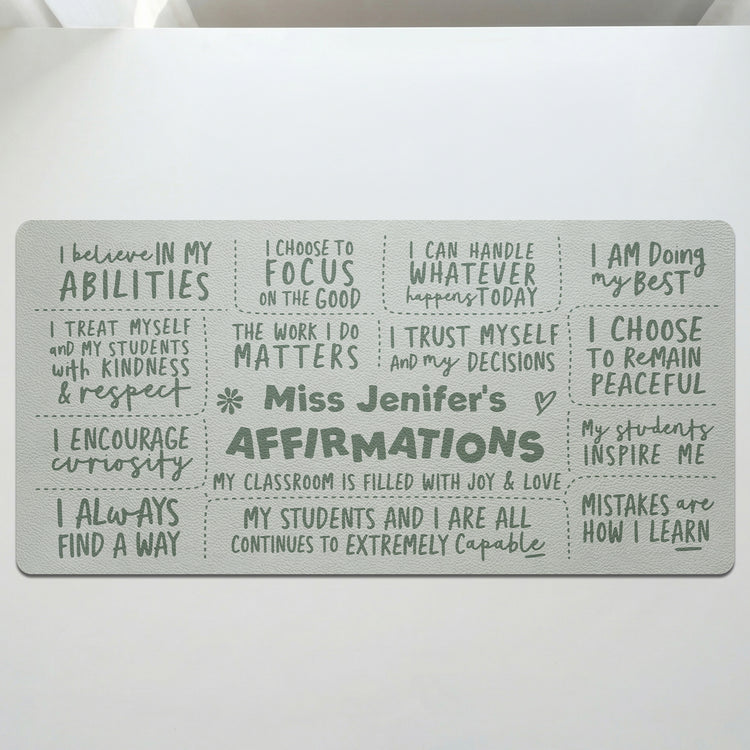 I believe IN MY
ABILITIES
I CHOOSE TO
FOCUS
ON THE GOOD
I CAN HANDLE
WHATEVER
happens TODAY
I AM Doing
my BEST
I TREAT MYSELF
and MY STUDENTS
with KINDNESS
& respect
THE WORK I DO
MATTERS
I TRUST MYSELF
AND my DECISIONS
I CHOOSE
TO ReMAIN
PEACEFUL
Miss Jenifer's
AFFIRMATIONS
MY CLASSROOM IS FILLED WITH JOY & LOVE
I ENCOURAGE
curiosity
My students
INSPIRE ME
I ALwAYS
FIND A WAY
MY STUDENTS AND I ARE ALL
CONTINUES TO EXTREMELY Capable
MISTAKES are
HOW I LEARN